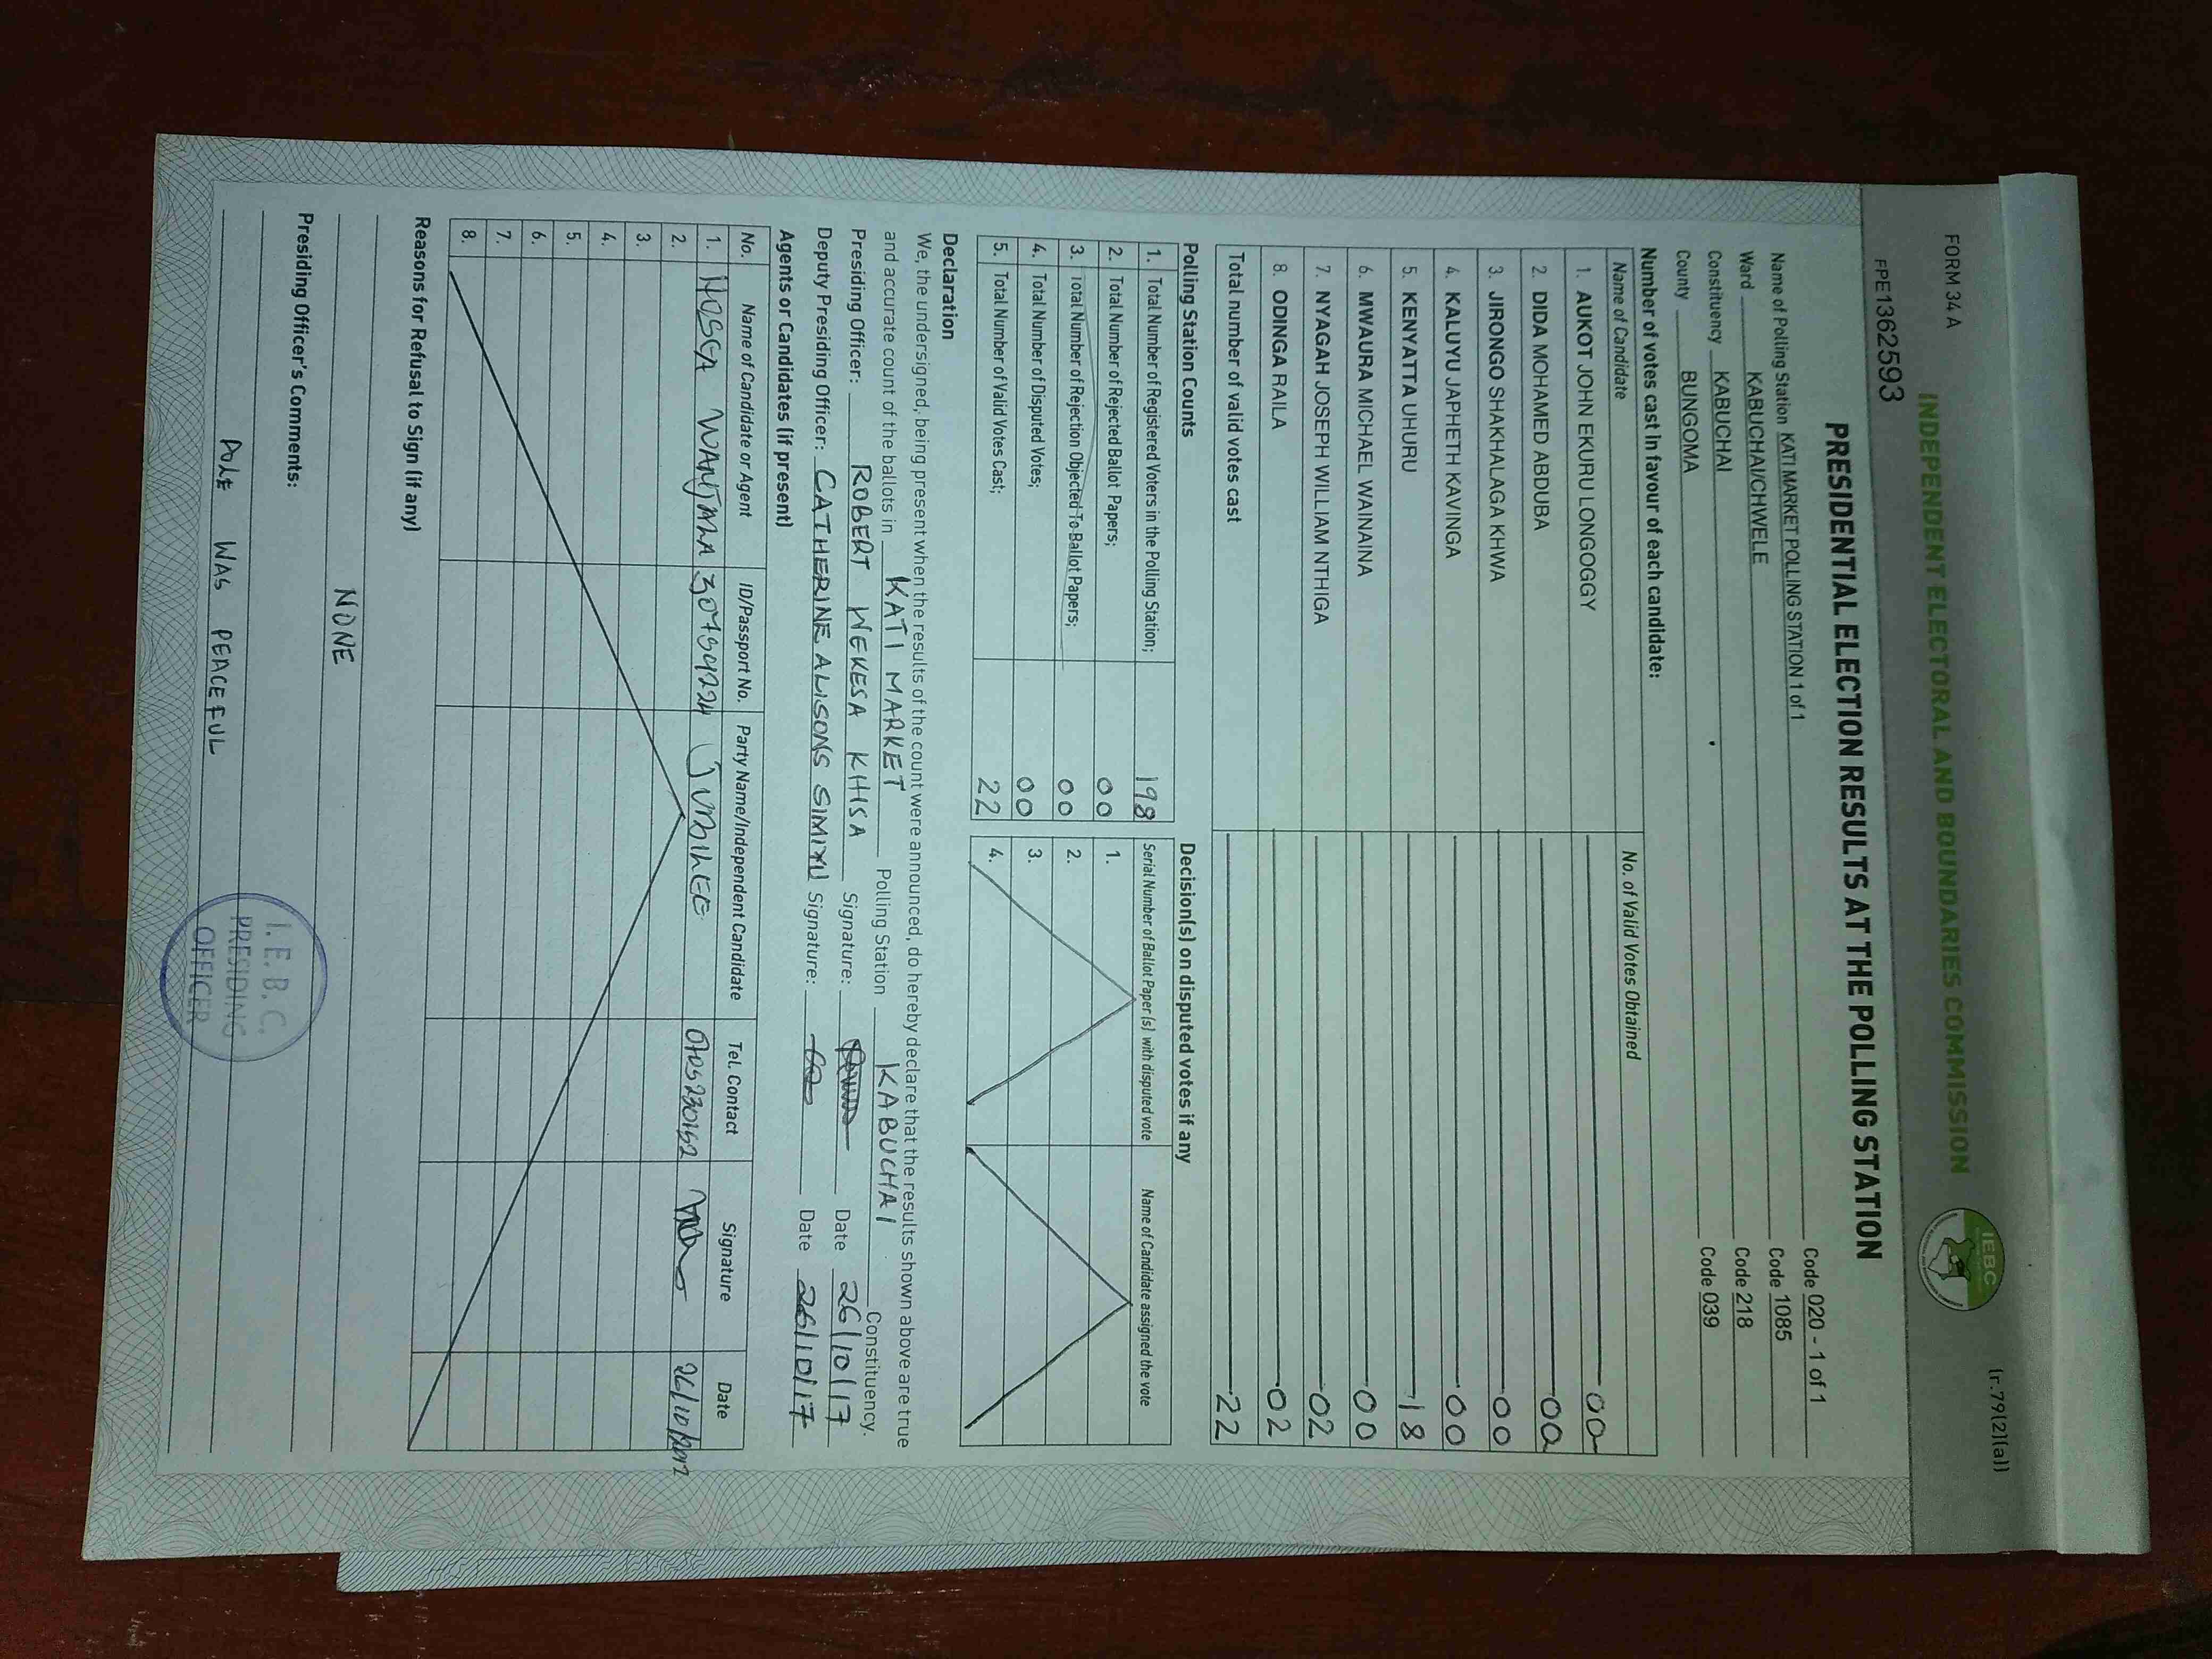 FORM 34 A
(r.79(2)(a))
INDEPENDENT ELECTORAL AND BOUNDARIES COMMISSION
IEBC
FPE1362593
PRESIDENTIAL ELECTION RESULTS AT THE POLLING STATION
Name of Polling Station KATI MARKET POLLING STATION 1 of 1 Code 020 - 1 of 1
Ward KABUCHAI/CHWELE Code 1085
Constituency KABUCHAI Code 218
County BUNGOMA Code 039
Number of votes cast in favour of each candidate:
Name of Candidate No. of Valid Votes Obtained
1. AUKOT JOHN EKURU LONGOGGY 00
2. DIDA MOHAMED ABDUBA 00
3. JIRONGO SHAKHALAGA KHWA 00
4. KALUYU JAPHETH KAVINGA 00
5. KENYATTA UHURU 18
6. MWAURA MICHAEL WAINAINA 00
7. NYAGAH JOSEPH WILLIAM NTHIGA 02
8. ODINGA RAILA 02
Total number of valid votes cast 22
Polling Station Counts Decision(s) on disputed votes if any
1. Total Number of Registered Voters in the Polling Station; 198 Serial Number of Ballot Paper (s) with disputed vote Name of Candidate assigned the vote
2. Total Number of Rejected Ballot Papers; 00 1.
3. Total Number of Rejection Objected To Ballot Papers; 00 2.
4. Total Number of Disputed Votes; 00 3.
5. Total Number of Valid Votes Cast; 22 4.
Declaration
We, the undersigned, being present when the results of the count were announced, do hereby declare that the results shown above are true
and accurate count of the ballots in KATI MARKET Polling Station KABUCHAI Constituency.
Presiding Officer: ROBERT WEKESA KHISA Signature: Date 26/10/17
Deputy Presiding Officer: CATHERINE ALISONS SIMIYU Signature: Date 26/10/17
Agents or Candidates (if present)
No. Name of Candidate or Agent ID/Passport No. Party Name/Independent Candidate Tel. Contact Signature Date
1. WANJALA JUBILEE 26/10/2017
2.
3.
4.
5.
6.
7.
8.
Reasons for Refusal to Sign (if any)
NONE
Presiding Officer's Comments:
WAS PEACEFUL
I.E.B.C.
PRESIDING
OFFICER